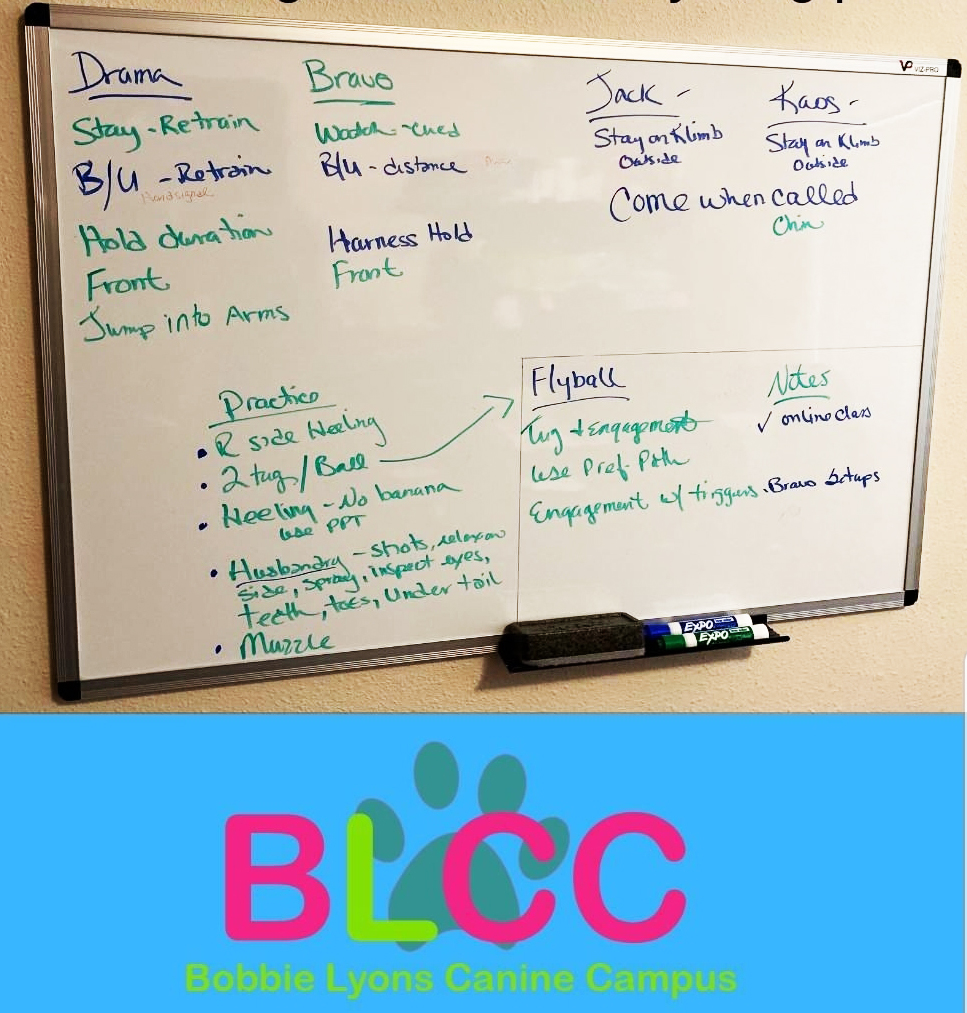 VP VIZ-PRO
Drama
Stay - Retrain
B/U - Retrain
Handsignal
Hold duration
Front
Jump into Arms
Bravo
Watch - cued
B/U - distance
Harness Hold
Front
Jack -
Stay on Klimb
Outside
Kaos -
Stay on Klimb
Outside
Come when called
Chin
Practice
• R side Heeling
• 2 tug / Ball
• Heeling - No banana
use PPT
• Husbandry - shots, relax on
side, spray, inspect eyes,
teeth, toes, under tail
• Muzzle
Flyball
Tug + Engagement
Use Pref. Path
Engagement w/ triggers
Notes
✓ online class
• Bravo Setups
EXPO
EXPO
BLCC
Bobbie Lyons Canine Campus